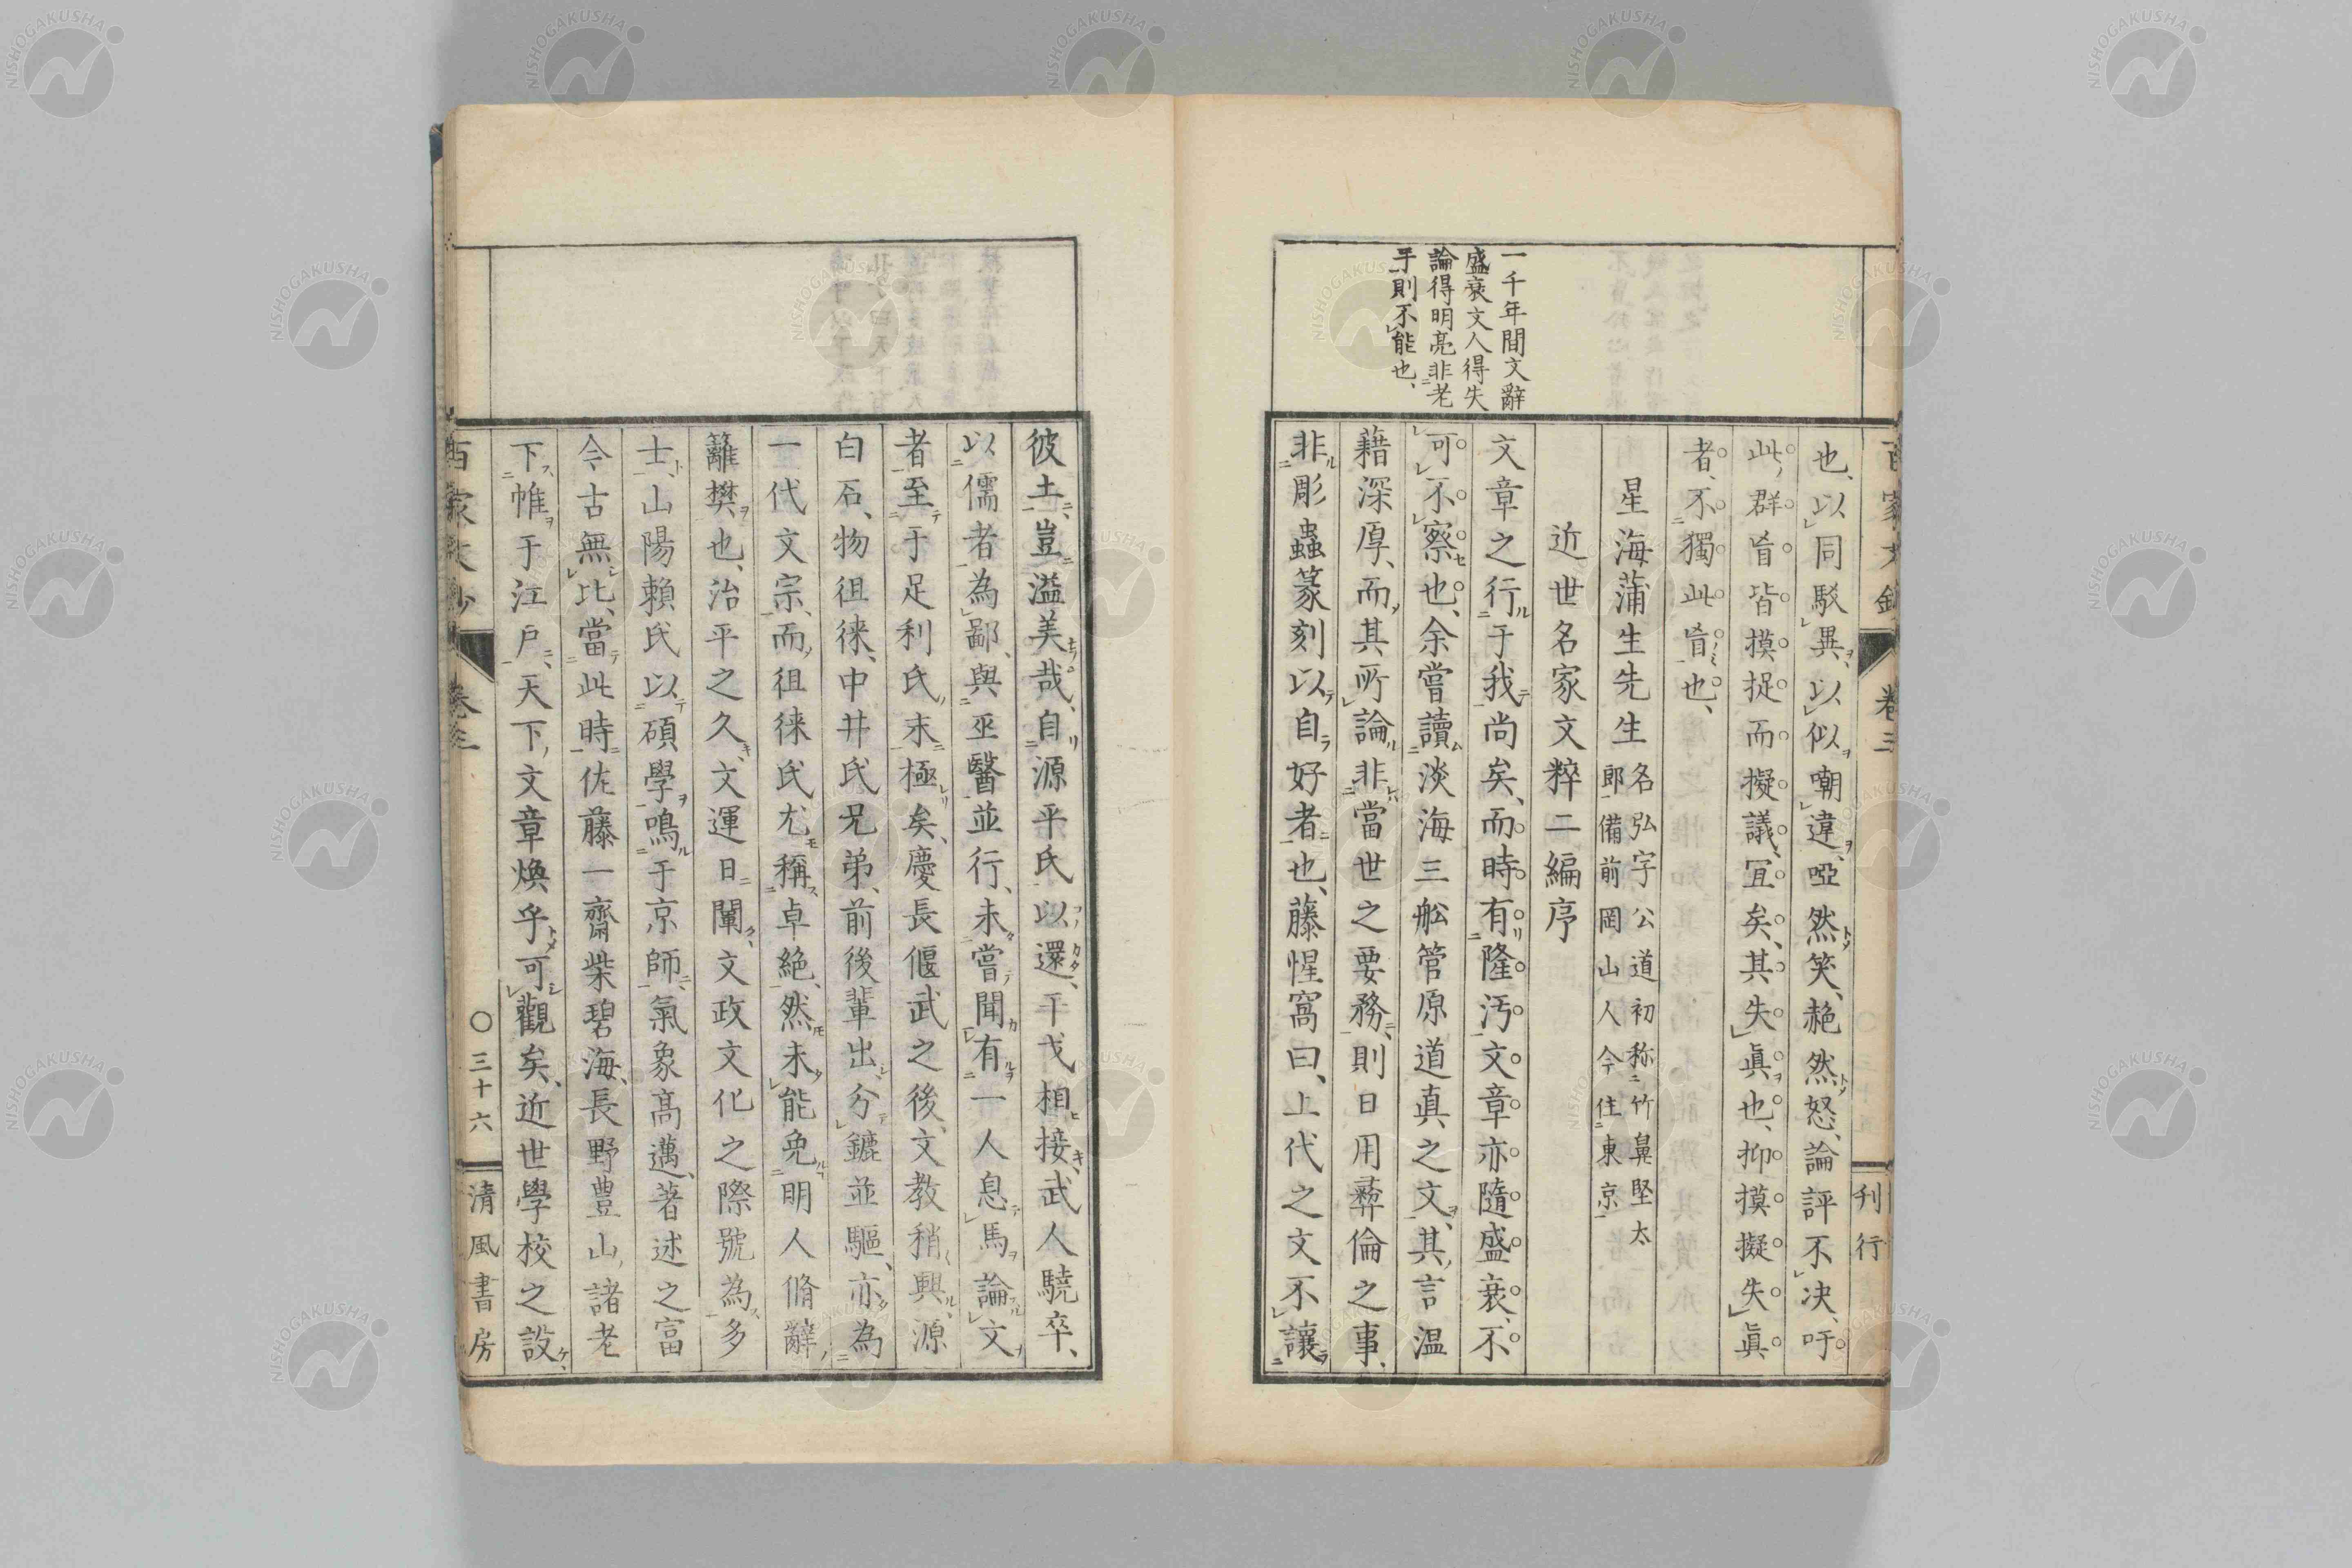 百家文鈔
卷三
刊行
一千年間文辭
盛衰文人得失
論得明亮非老
手則不能也、
也、以同駁異、以似嘲違、啞然笑、赩然怒、論評不決、吁
此、群盲皆摸捉而擬議、宜矣、其失眞也、抑摸擬失眞
者、不獨此盲也、
星海蒲生先生
名弘字公道初称竹鼻堅太
郎備前岡山人今住東京
近世名家文粹二編序
文章之行于我尚矣、而時有隆汚、文章亦隨盛衰、不
可不察也、余嘗讀淡海三舩管原道真之文、其言温
藉深厚、而其所論非當世之要務、則日用彜倫之事、
非彫蟲篆刻以自好者也、藤惺窩曰、上代之文不讓
彼土、豈溢美哉、自源平氏以還、干戈相接、武人驍卒、
以儒者為鄙、與巫醫並行、未嘗聞有一人息馬論文
者、至于足利氏末極矣、慶長偃武之後、文教稍興、源
白石、物徂徠、中井氏兄弟、前後輩出、分鑣並驅、亦為
一代文宗、而徂徠氏尤稱卓絶、然未能免明人脩辭
籬樊也、治平之久、文運日闡、文政文化之際號為多
士、山陽賴氏以碩學鳴于京師、氣象高邁、著述之富
今古無比、當此時佐藤一齋柴碧海、長野豊山、諸老
下帷于江戶、天下文章煥乎可觀矣、近世學校之設
百家文鈔
卷三
〇三十六
清風書房